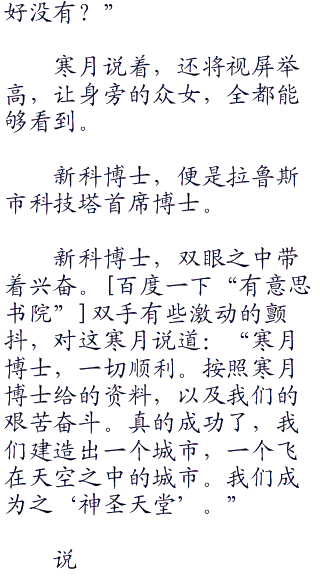 好没有？”
寒月说着，还将视屏举
高，让身旁的众女，全都能
够看到。
新科博士，便是拉鲁斯
市科技塔首席博士。
新科博士，双眼之中带
着兴奋。[百度一下“有意思
书院”]双手有些激动的颤
抖，对这寒月说道：“寒月
博士，一切顺利。按照寒月
博士给的资料，以及我们的
艰苦奋斗。真的成功了，我
们建造出一个城市，一个飞
在天空之中的城市。我们成
为之‘神圣天堂’。”
说